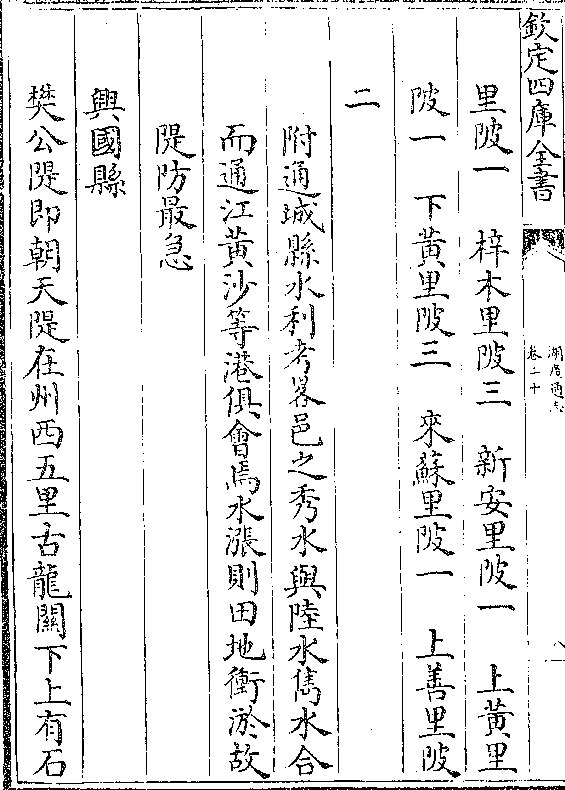 欽定四庫全書
湖廣通志
卷二十
八
里陂一 梓木里陂三 新安里陂一 上黃里
陂一 下黃里陂三 來蘇里陂一 上善里陂
二
附通城縣水利考畧邑之秀水與陸水雋水合
而通江黃沙等港俱會焉水漲則田地衝淤故
隄防最急
興國縣
樊公隄即朝天隄在州西五里古龍關下上有石